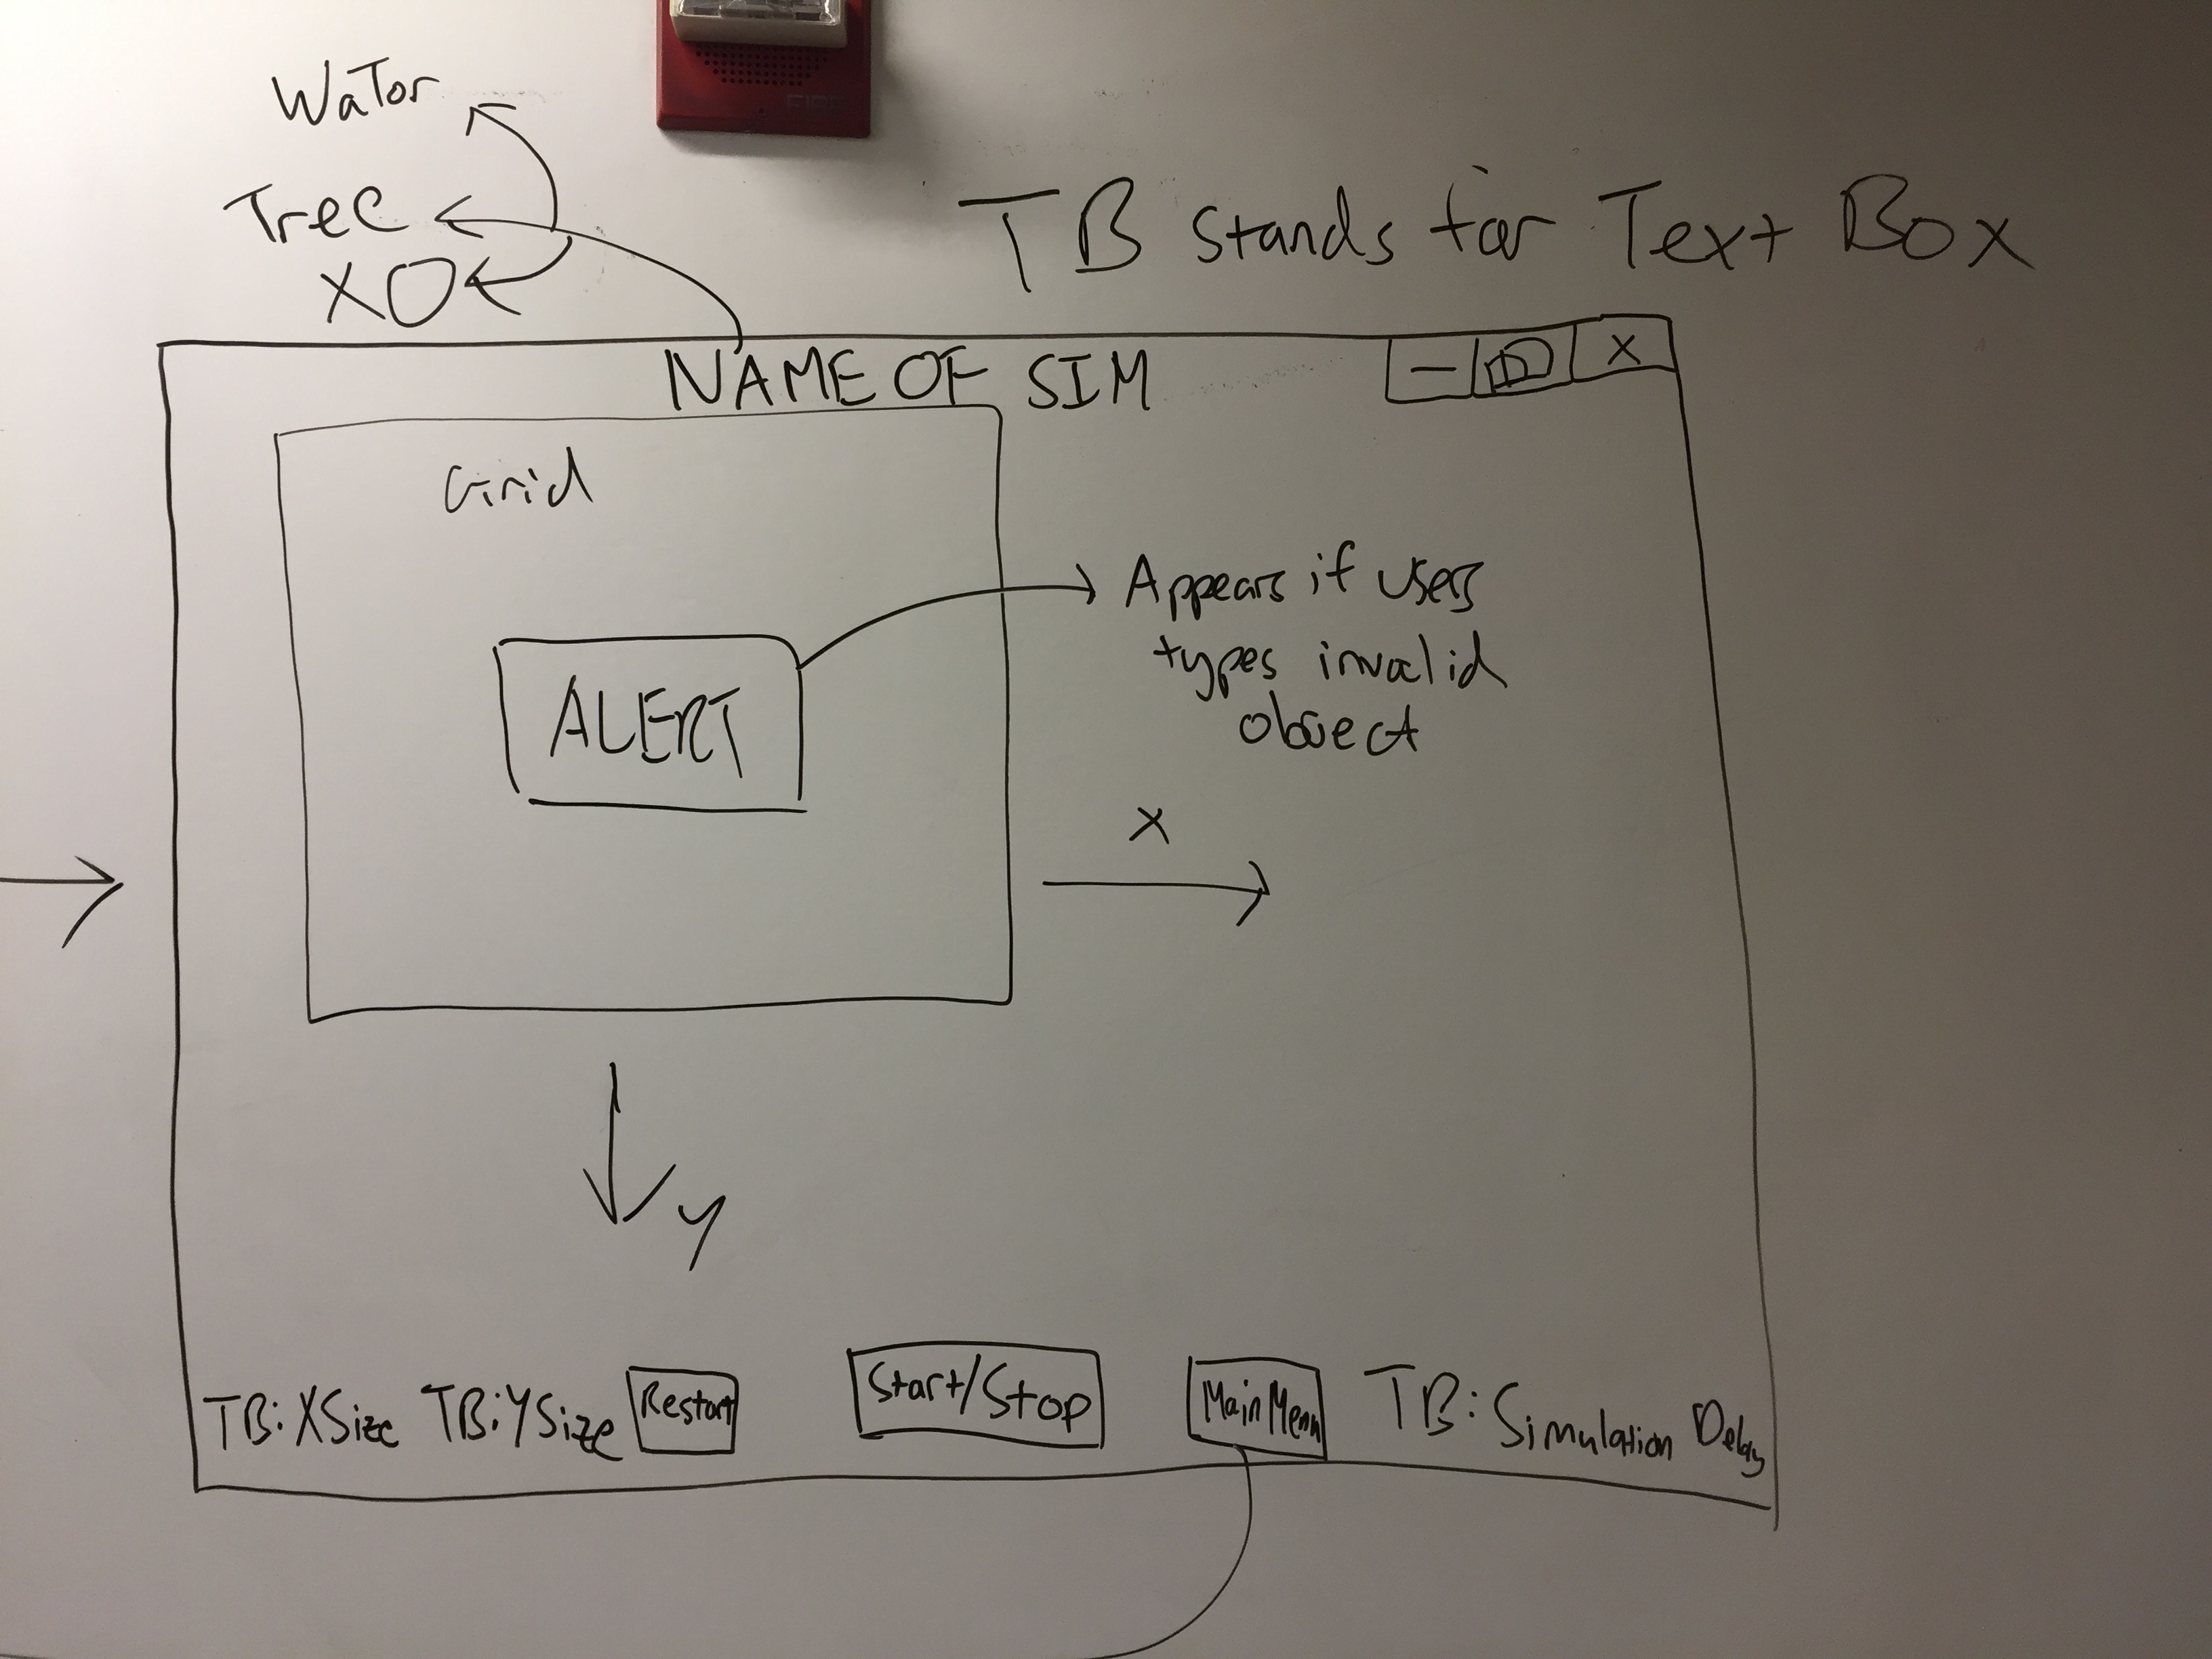 WaTor
Tree
XO
FIRE
TB stands for Text Box
NAME OF SIM
– X
Grid
ALERT
Appears if users
types invalid
object
X
Y
TB: XSize TB: YSize Restart Start/Stop Main Menu TB: Simulation Delay